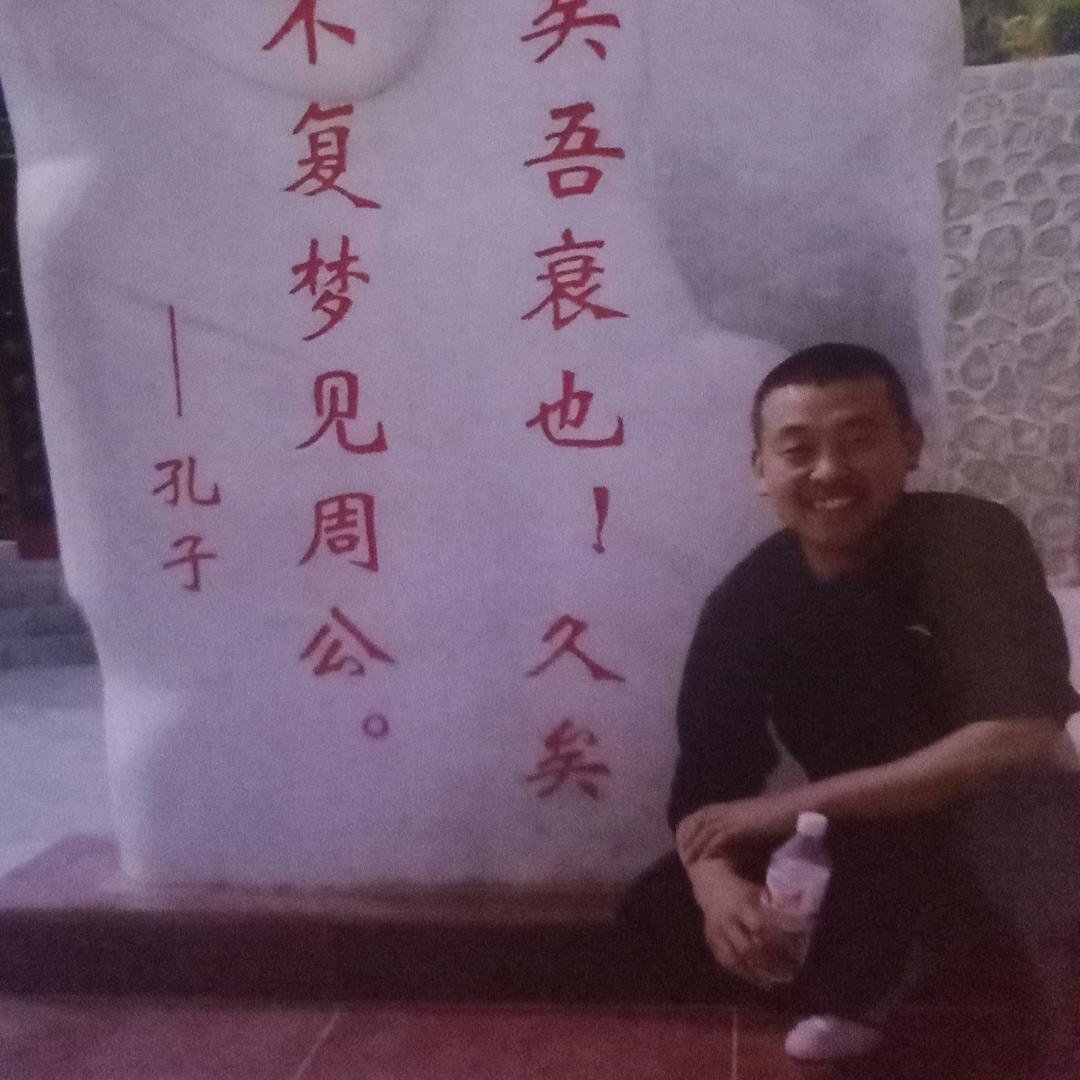 矣吾衰也！久矣
不复梦见周公。
——孔子